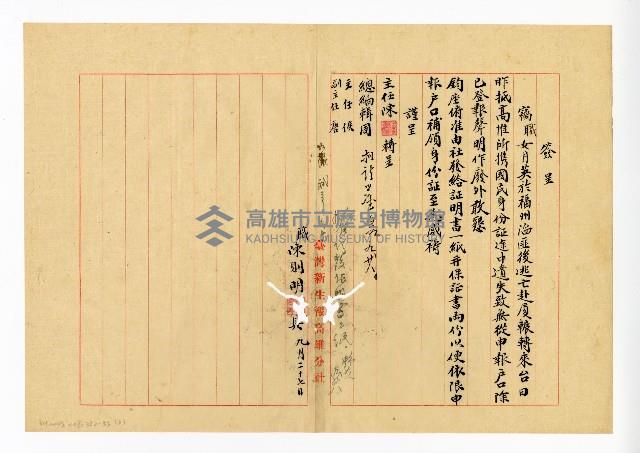 簽呈
竊職女月英於福州淪匪後逃亡赴廈輾轉來台日
昨抵高惟所携國民身份証途中遺失致無從申報戶口除
已登報聲明作廢外敬懇
鈞座俯准由社發給証明書一紙并保証書兩份以便依限申
報戶口補領身份証至感禱
謹呈
主任陳 轉呈
總編輯
主任
副主任
職 陳則明
九月二十七日
臺灣新生報高雄分社
高雄市立歷史博物館
KAOHSIUNG MUSEUM OF HISTORY